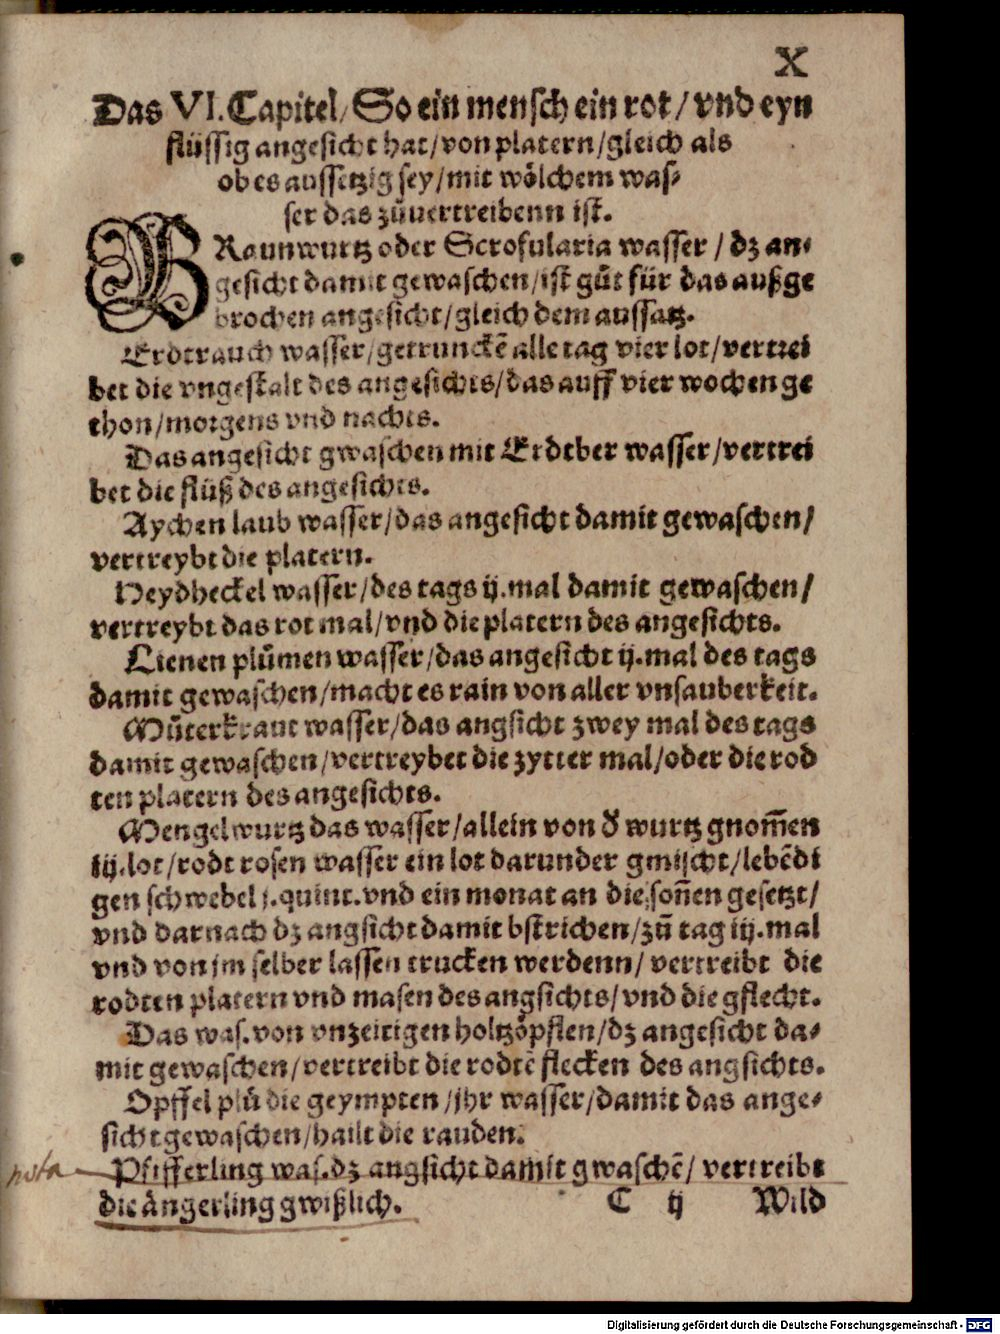 X
Das VI. Capitel/ So ein mensch ein rot/ vnd eyn
flüssig angesicht hat/ von platern/ gleich als
ob es aussetzig sey/ mit wölchem was-
ser das zůuertreibenn ist.
BRaunwurtz oder Scrofularia wasser / dz an-
gesicht damit gewaschen/ ist gůt für das außge
brochen angesicht/ gleich dem aussatz.
Erdtrauch wasser/ getrunckẽ alle tag vier lot/ vertrei
bet die vngestalt des angesichts/ das auff vier wochen ge
thon/ morgens vnd nachts.
Das angesicht gwaschen mit Erdtber wasser/ vertrei
bet die flüß des angesichts.
Aychen laub wasser/ das angesicht damit gewaschen/
vertreybt die platern.
Heydheckel wasser/ des tags ij. mal damit gewaschen/
vertreybt das rot mal/ vnd die platern des angesichts.
Lienen plůmen wasser/ das angesicht ij. mal des tags
damit gewaschen/ macht es rain von aller vnsauberkeit.
Můterkraut wasser/ das angsicht zwey mal des tags
damit gewaschen/ vertreybet die zytter mal/ oder die rod
ten platern des angesichts.
Mengelwurtz das wasser/ allein von d̕ wurtz gnom̃en
iij. lot/ rodt rosen wasser ein lot darunder gmischt/ lebẽdi
gen schwebel j. quint. vnd ein monat an die son̄en gesetzt/
vnd darnach dz angsicht damit bstrichen/ zů tag iij. mal
vnd von jm selber lassen trucken werdenn/ vertreibt die
rodten platern vnd masen des angsichts/ vnd die gflecht.
Das was. von vnzeitigen holtzöpflen/ dz angesicht da-
mit gewaschen/ vertreibt die rodtẽ flecken des angsichts.
Opffel plů die geympten/ jhr wasser/ damit das ange-
sicht gewaschen/ hailt die rauden.
nota Pfifferling was. dz angsicht damit gwaschẽ/ vertreibt
die ångerling gwißlich. C ij Wild
Digitalisierung gefördert durch die Deutsche Forschungsgemeinschaft - DFG